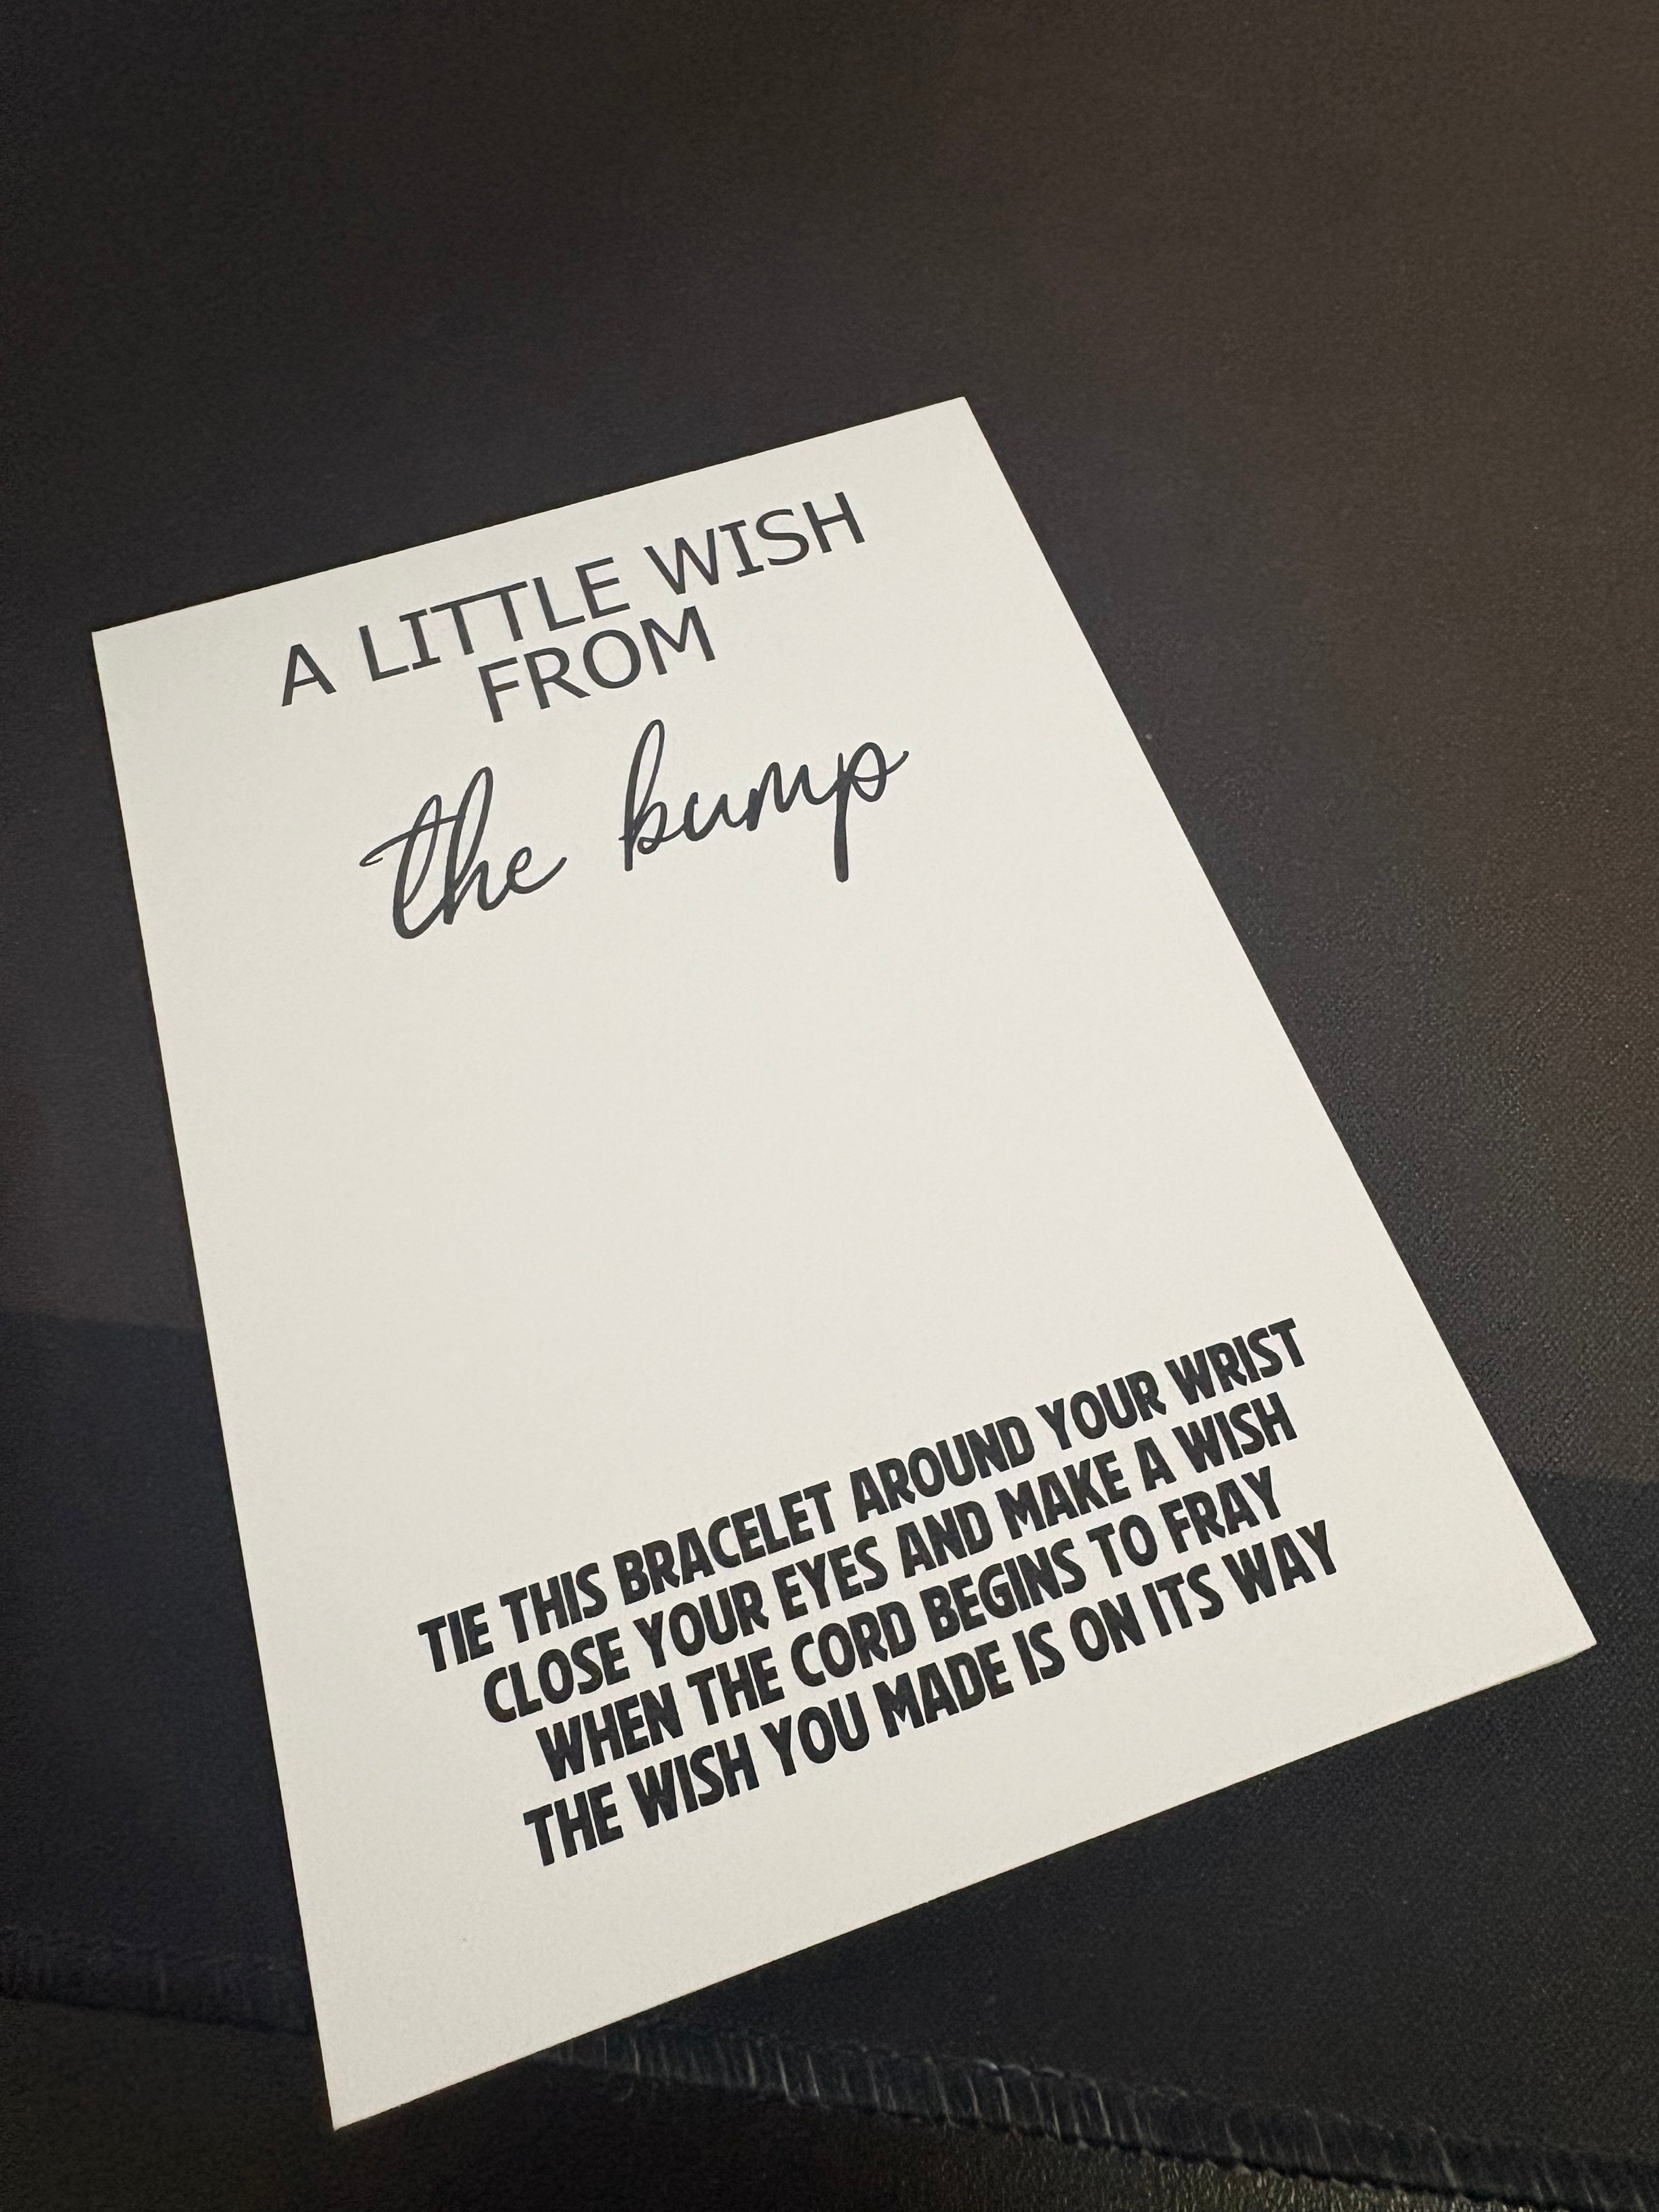 A LITTLE WISH
FROM
the bump
TIE THIS BRACELET AROUND YOUR WRIST
CLOSE YOUR EYES AND MAKE A WISH
WHEN THE CORD BEGINS TO FRAY
THE WISH YOU MADE IS ON ITS WAY